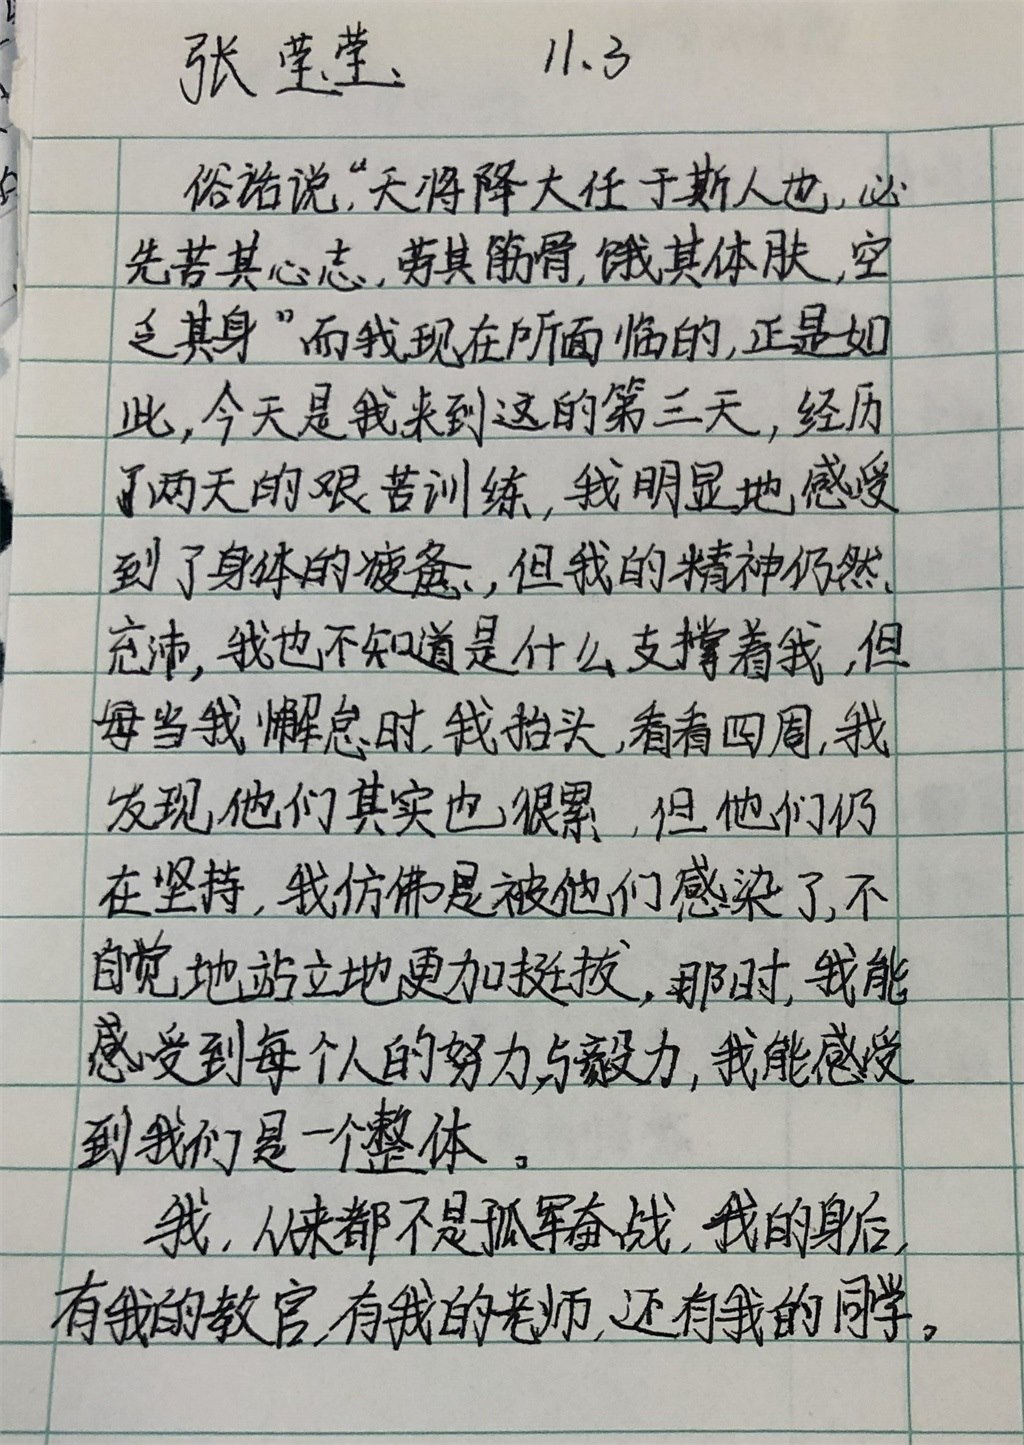 张莹莹 11.3
俗话说,“天将降大任于斯人也,必
先苦其心志,劳其筋骨,饿其体肤,空
乏其身”而我现在所面临的,正是如
此,今天是我来到这的第三天,经历
了两天的艰苦训练,我明显地感受
到了身体的疲惫,但我的精神仍然
充沛,我也不知道是什么支撑着我,但
每当我懈怠时,我抬头,看看四周,我
发现他们其实也很累,但他们仍
在坚持,我仿佛是被他们感染了,不
自觉地站立地更加挺拔,那时,我能
感受到每个人的努力与毅力,我能感受
到我们是一个整体。
我,从来都不是孤军奋战,我的身后,
有我的教官,有我的老师,还有我的同学。